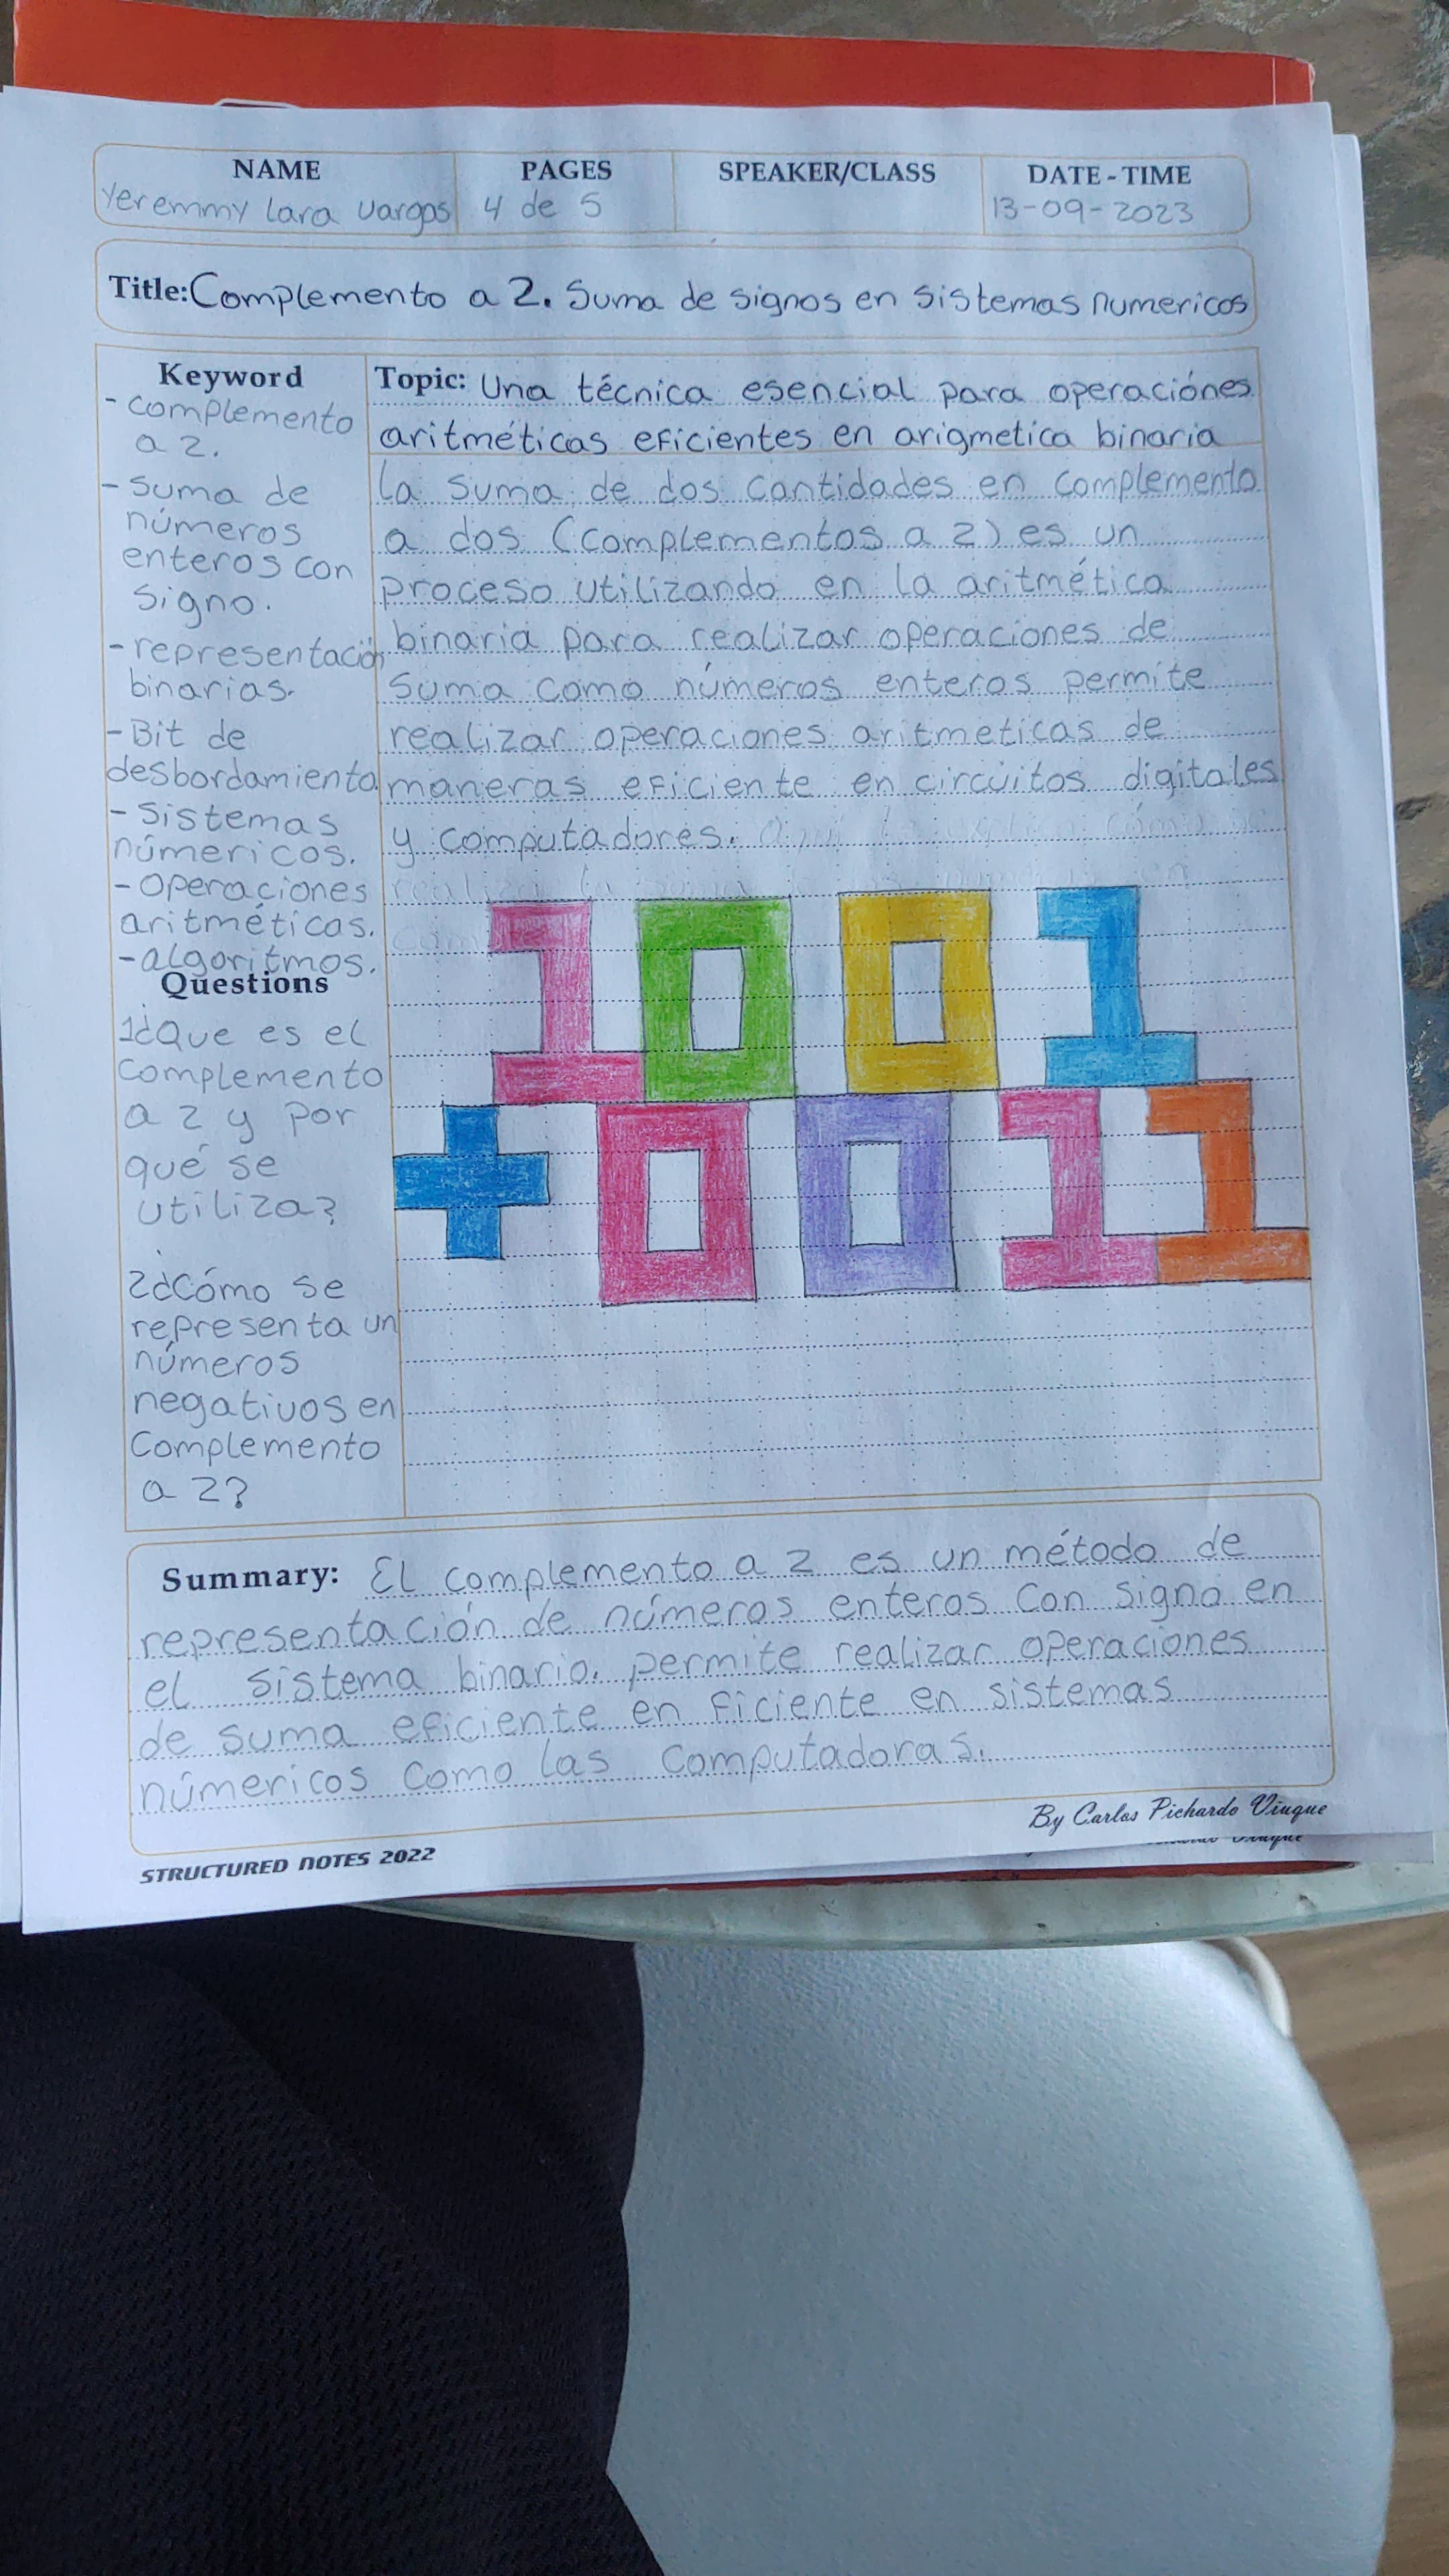 NAME
Yeremmy Lara Vargas
PAGES
4 de 5
SPEAKER/CLASS
DATE-TIME
13-09-2023
Title: Complemento a 2. Suma de signos en sistemas numericos
Keyword
- complemento
a 2.
- Suma de
números
enteros con
signo.
- representación
binarias.
- Bit de
desbordamiento.
- Sistemas
númericos.
- Operaciones
aritméticas.
- algoritmos.
Questions
1¿Que es el
Complemento
a 2 y por
qué se
utiliza?
2¿Cómo se
representa un
números
negativos en
Complemento
a 2?
Topic: Una técnica esencial para operaciónes
aritméticas eficientes en arigmetica binaria
la suma de dos cantidades en complemento
a dos (complementos a 2) es un
proceso utilizando en la aritmética
binaria para realizar operaciones de
suma como números enteros permite
realizar operaciones aritmeticas de
maneras eficiente en circuitos digitales
y computadores.
1001
+0011
Summary: El complemento a 2 es un método de
representación de números enteros con signo en
el sistema binario. permite realizar operaciones
de suma eficiente en ficiente en sistemas
númericos como las computadoras.
By Carlos Pichardo Viuque
STRUCTURED NOTES 2022